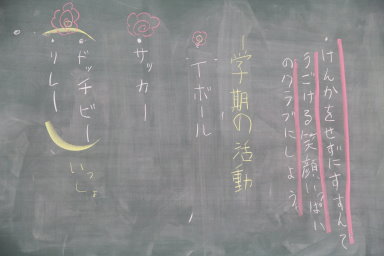 ・けんかをせずにすすんで
うごける笑顔いっぱい
のクラブにしよう。
一学期の活動
・Tボール
・サッカー
・ドッチビー
・リレー
いっしょ